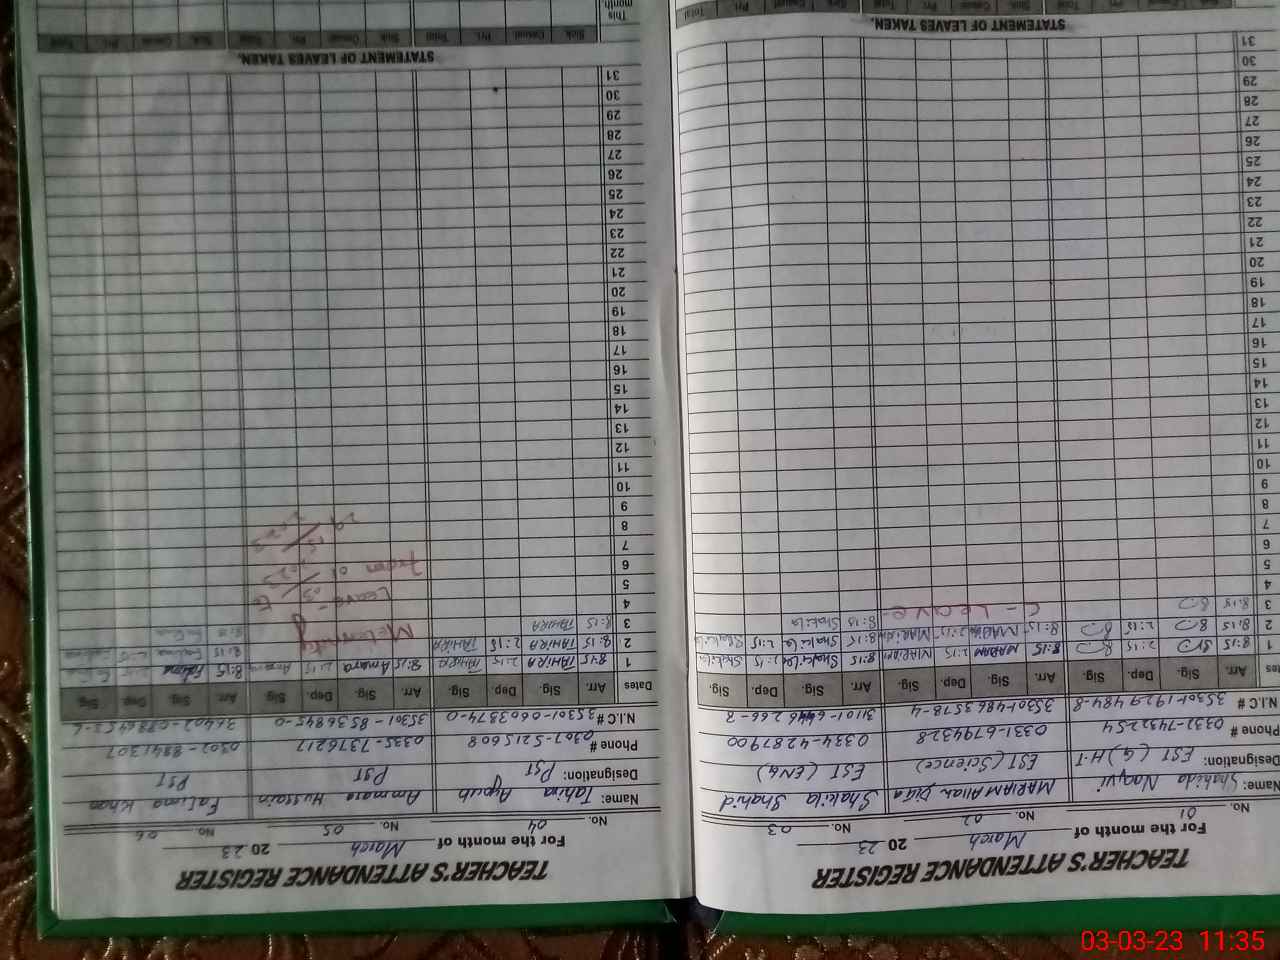 TEACHER'S ATTENDANCE REGISTER
For the month of March 2023
No. 01 No. 02 No. 03
Name: Shahida Naqvi MARIAM Allah Ditta Shakila Shahid
Designation: EST (G) H.T EST (Science) EST (ENG)
Phone # 0332-7432254 0331-6794328 0334-4287900
N.I.C # 35301-1929484-8 35301-4863578-4
Dates Arr. Sig. Dep. Sig. Arr. Sig. Dep. Sig. Arr. Sig. Dep. Sig.
1 8:15 2:15 8:15 MARIAM 2:15 MARIAM 8:15 Shakila 2:15 Shakila
2 8:15 2:15 8:15 MARIAM 2:15 MARIAM 8:15 Shakila 2:15 Shakila
3 8:15 C - Leave 8:15 Shakila
4
5
6
7
8
9
10
11
12
13
14
15
16
17
18
19
20
21
22
23
24
25
26
27
28
29
30
31
STATEMENT OF LEAVES TAKEN.
TEACHER'S ATTENDANCE REGISTER
For the month of March 2023
No. 04 No. 05 No. 06
Name: Tahira Ayoub Ammara Hussain Fatima Khan
Designation: PST PST PST
Phone # 0307-5215608 0335-7376217 0302-8841307
N.I.C # 35301-0603574-0 35301-8536845-0
Dates Arr. Sig. Dep. Sig. Arr. Sig. Dep. Sig. Arr. Sig. Dep. Sig.
1 8:15 TAHIRA 2:15 TAHIRA 8:15 Amara 2:15 Amara 8:15 Fatima 2:15 Fatima
2 8:15 TAHIRA 2:15 TAHIRA 8:15 Fatima 2:15 Fatima
3 8:15 TAHIRA Maternity 8:15 Fatima
4 Leave
5
6 From 01/03/2023 To
7
8 29/05/2023
9
10
11
12
13
14
15
16
17
18
19
20
21
22
23
24
25
26
27
28
29
30
31
STATEMENT OF LEAVES TAKEN.
Sick Casual Pri. Total Sick Casual Pri. Total Sick Casual Pri. Total
This month.
03-03-23 11:35